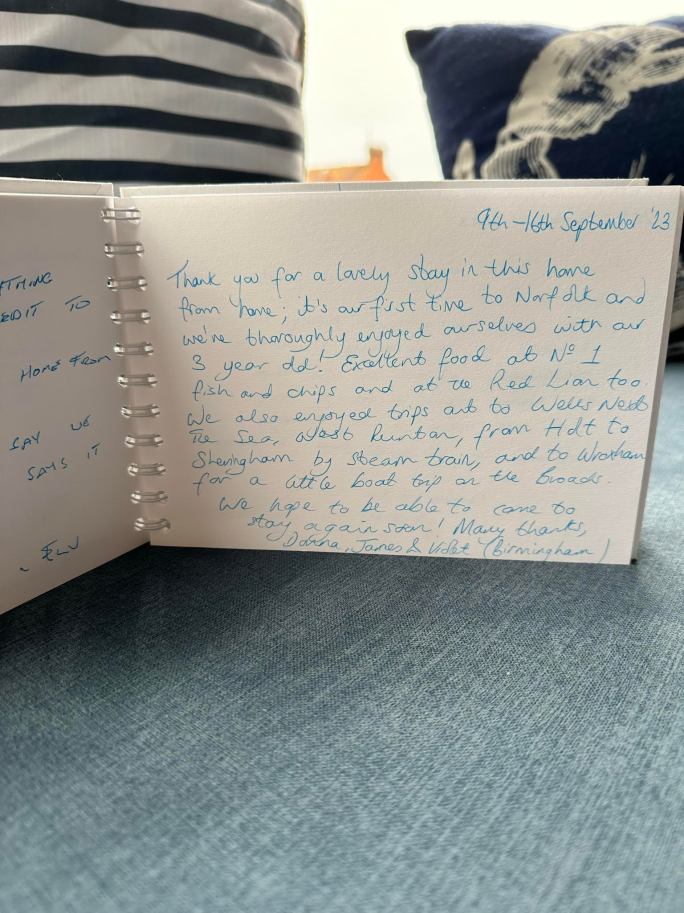 THING
EDIT TO
HOME FROM
SAY WE
SAYS IT
9th -16th September '23
Thank you for a lovely stay in this home
from home; it's our first time to Norfolk and
we've thoroughly enjoyed ourselves with our
3 year old! Excellent food at Nº 1
fish and chips and at the Red Lion too.
We also enjoyed trips out to Wells Next
The Sea, West Runton, from Holt to
Sheringham by steam train, and to Wroxham
for a little boat trip on the Broads.
We hope to be able to come to
stay again soon! Many thanks,
Donna, James & Violet (Birmingham)